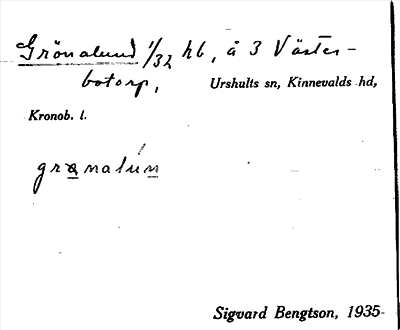 Grönalund 1/32 hb, å 3 Väster-
botorp,
Urshults sn, Kinnevalds hd,
Kronob. l.
grønalún
Sigvard Bengtson, 1935-